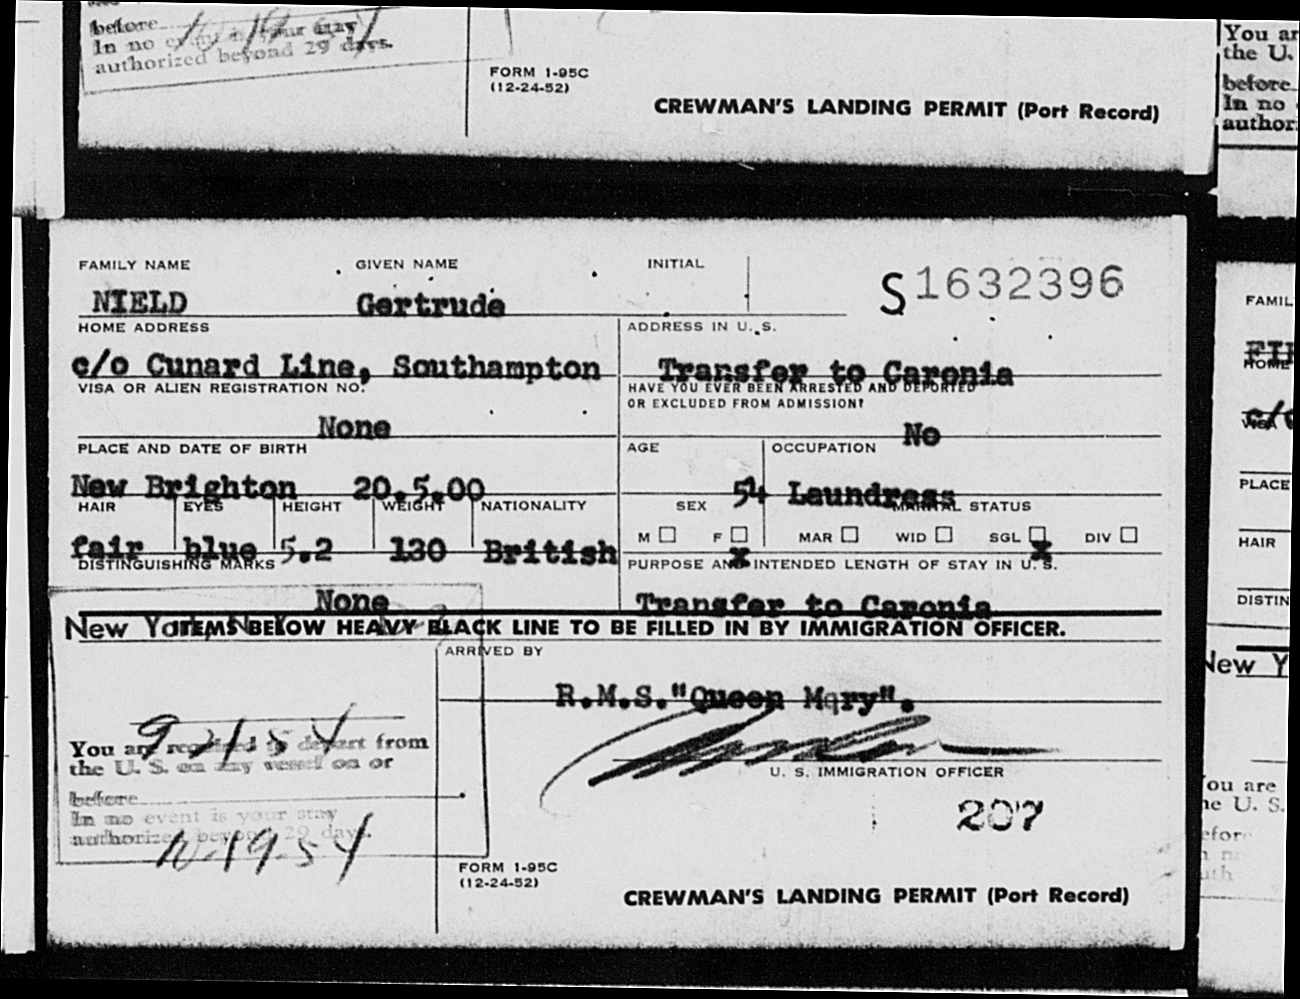 before
In no event is your stay
authorized beyond 29 days.
FORM I-95C
(12-24-52)
CREWMAN'S LANDING PERMIT (Port Record)
You ar
the U.
before
In no
author
FAMILY NAME GIVEN NAME INITIAL
S1632396
NIELD Gertrude
HOME ADDRESS ADDRESS IN U. S.
c/o Cunard Line, Southampton Transfer to Caronia
VISA OR ALIEN REGISTRATION NO. HAVE YOU EVER BEEN ARRESTED AND DEPORTED
OR EXCLUDED FROM ADMISSION?
None No
PLACE AND DATE OF BIRTH AGE OCCUPATION
New Brighton 20.5.00 54 Laundress
HAIR EYES HEIGHT WEIGHT NATIONALITY SEX MARITAL STATUS
M F MAR WID SGL DIV
fair blue 5.2 130 British x x
DISTINGUISHING MARKS PURPOSE AND INTENDED LENGTH OF STAY IN U. S.
None Transfer to Caronia
New York, N.Y.
ITEMS BELOW HEAVY BLACK LINE TO BE FILLED IN BY IMMIGRATION OFFICER.
ARRIVED BY
R.M.S."Queen Mary".
9 21 54
You are required to depart from
the U. S. on any vessel on or
U. S. IMMIGRATION OFFICER
before
207
In no event is your stay
authorized beyond 29 days.
10-19-54
FORM I-95C
(12-24-52)
CREWMAN'S LANDING PERMIT (Port Record)
FAMIL
HOME
c/o
VISA
PLACE
HAIR
DISTIN
New Y
ou are
he U. S.
efor